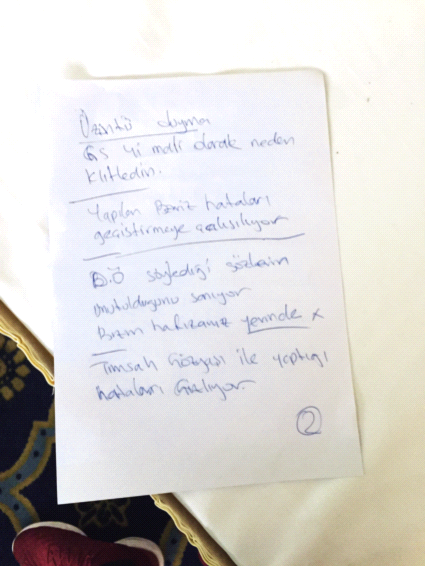 Üzüntü duyma
GS Yi mali olarak neden
klitledin.
Yapılan Bariz hataları
geçiştirmeye çalışılıyor
D.Ö söylediği sözlerin
unutulduğunu sanıyor
Bizim hafızamız yerinde x
Timsah Gözyaşı ile yaptığı
hataları Gizliyor.
2